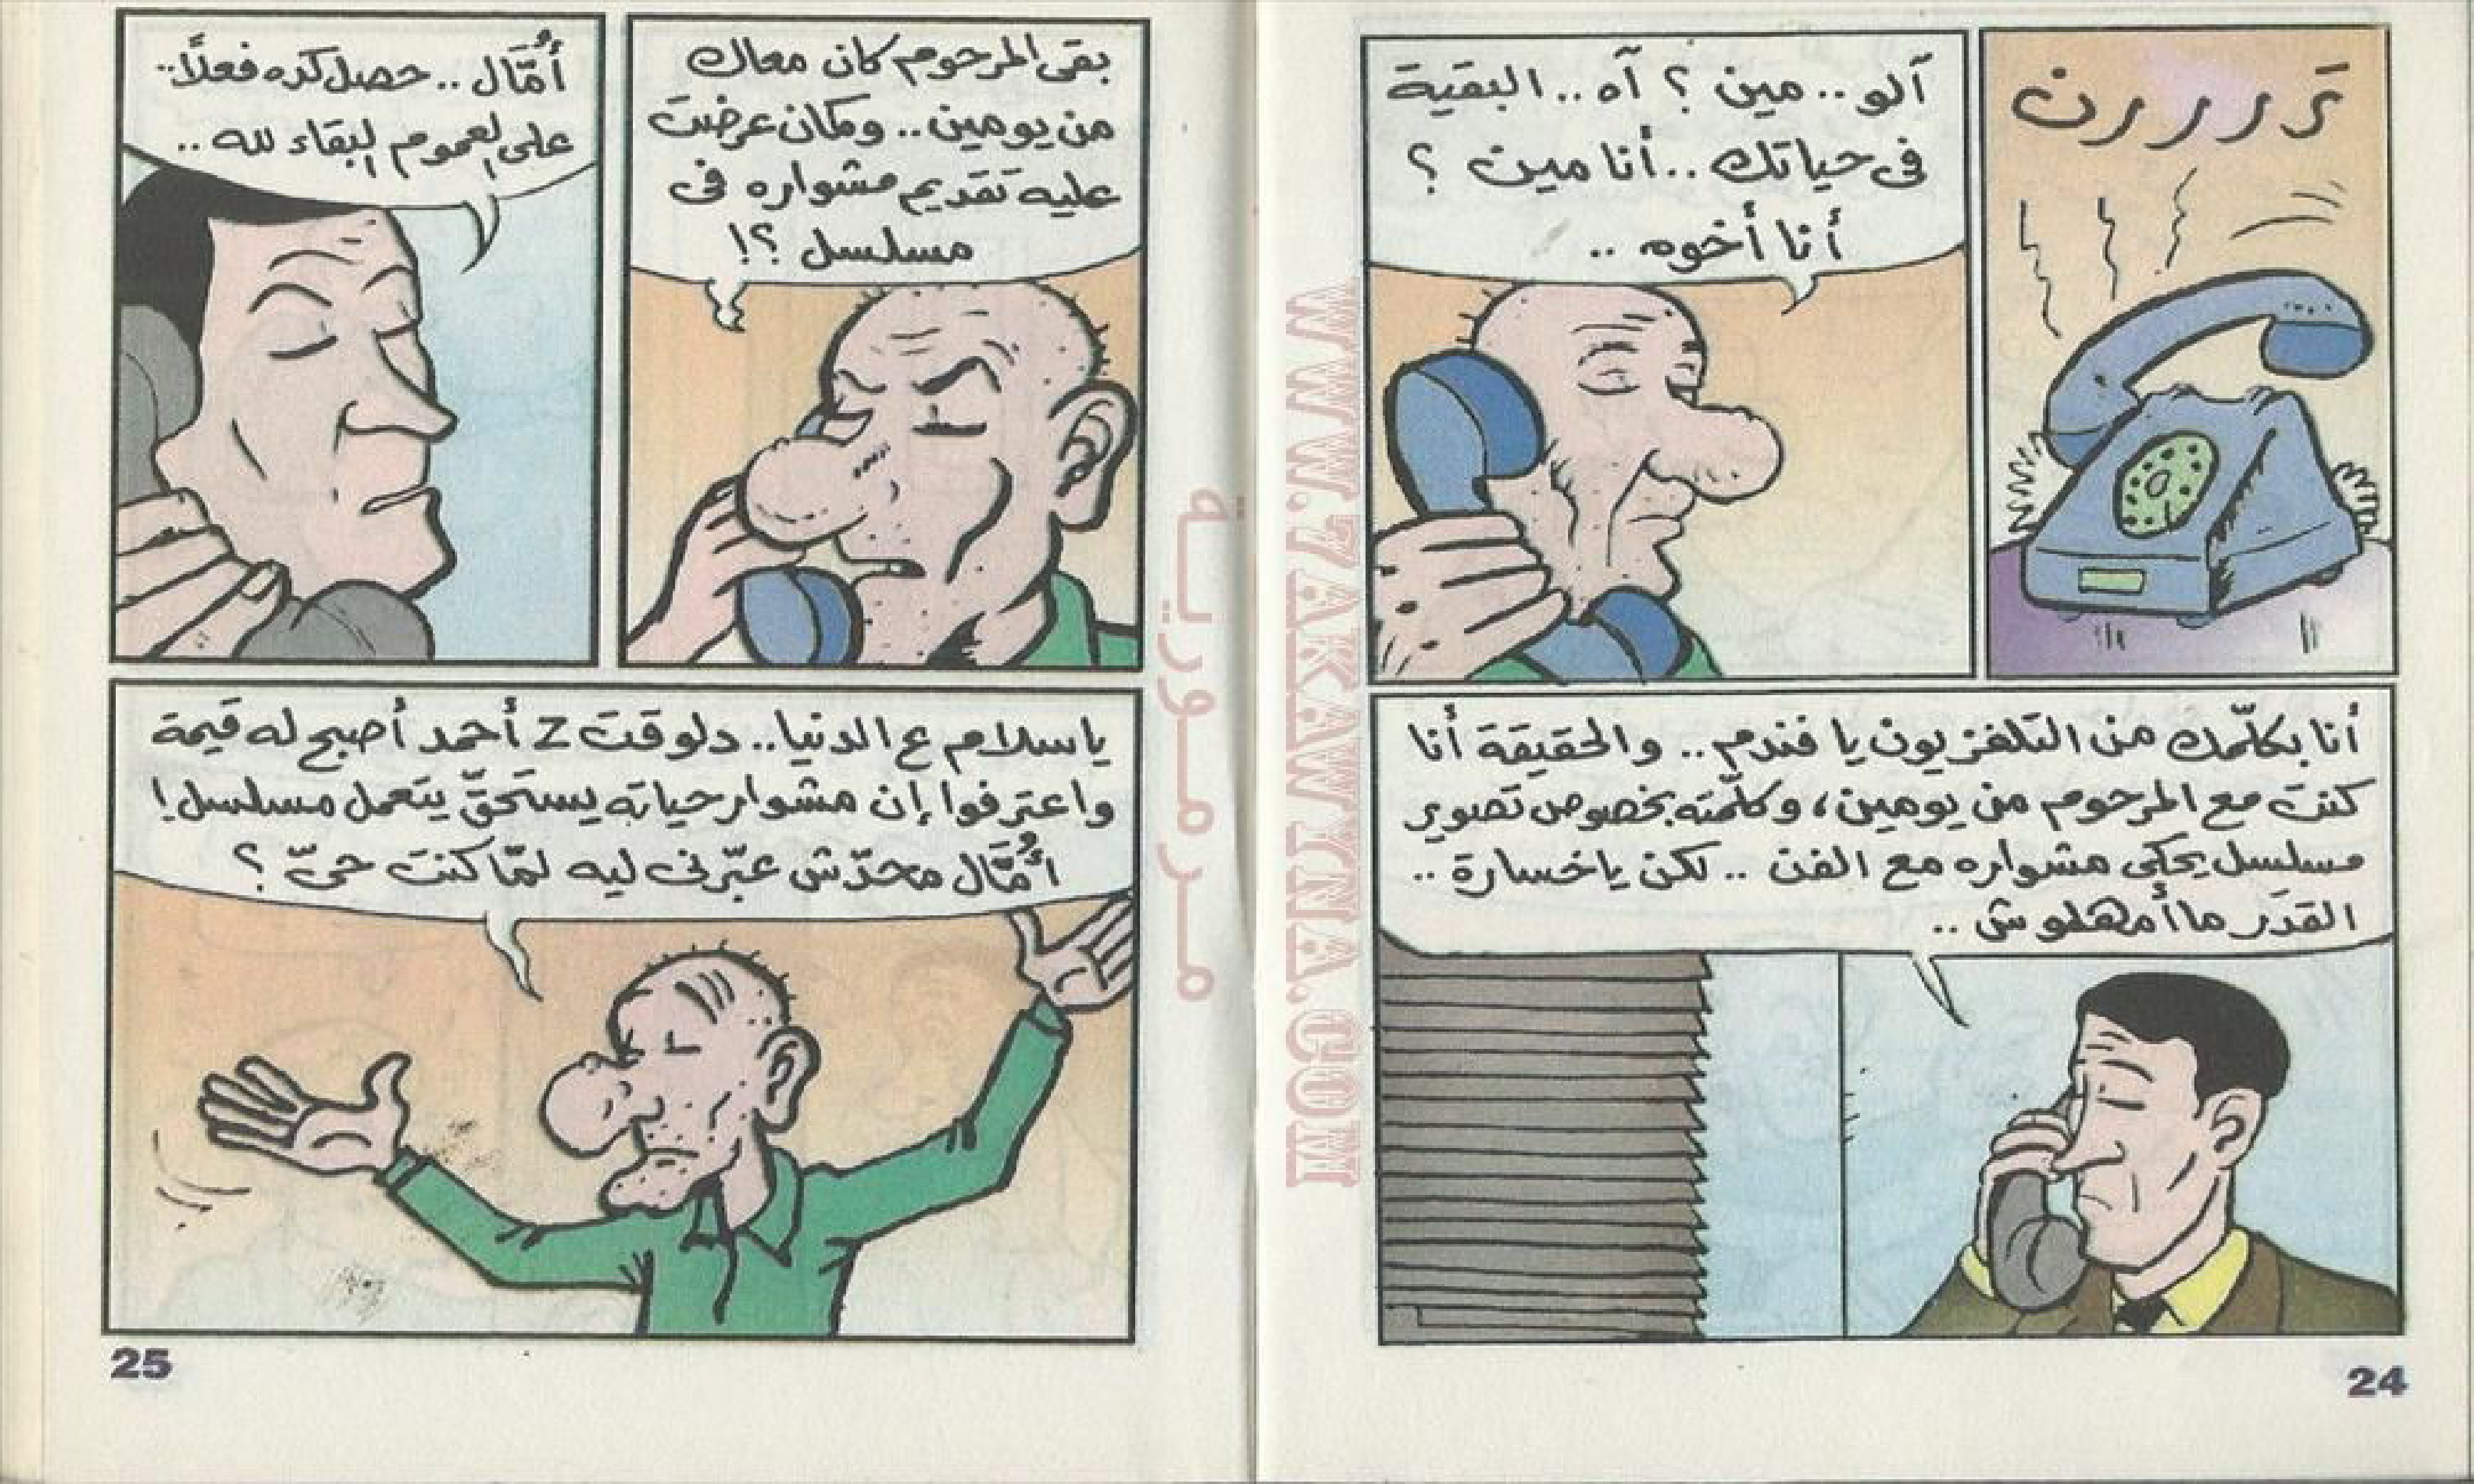 تررررن
آلو.. مين ؟ آه.. البقية
فى حياتك.. أنا مين ؟
أنا أخوه ..
أنا بكلّمك من التلفزيون يا فندم.. والحقيقة أنا
كنت مع المرحوم من يومين، وكلّمته بخصوص تصوير
مسلسل يحكى مشواره مع الفن .. لكن يا خسارة ..
القدَر ما أمهلوش ..
24
بقى المرحوم كان معاك
من يومين.. وكان عرضت
عليه تقديم مشواره فى
مسلسل ؟!
أُمَّال .. حصل كده فعلاً..
على العموم البقاء لله ..
يا سلام ع الدنيا.. دلوقت Z أحمد أصبح له قيمة
واعترفوا إن مشوار حياته يستحقّ يتعمل مسلسل!
أُمَّال محدّش عبّرنى ليه لمّا كنت حىّ ؟
25
مرمورية
WWW.7AKAWYNA.COM